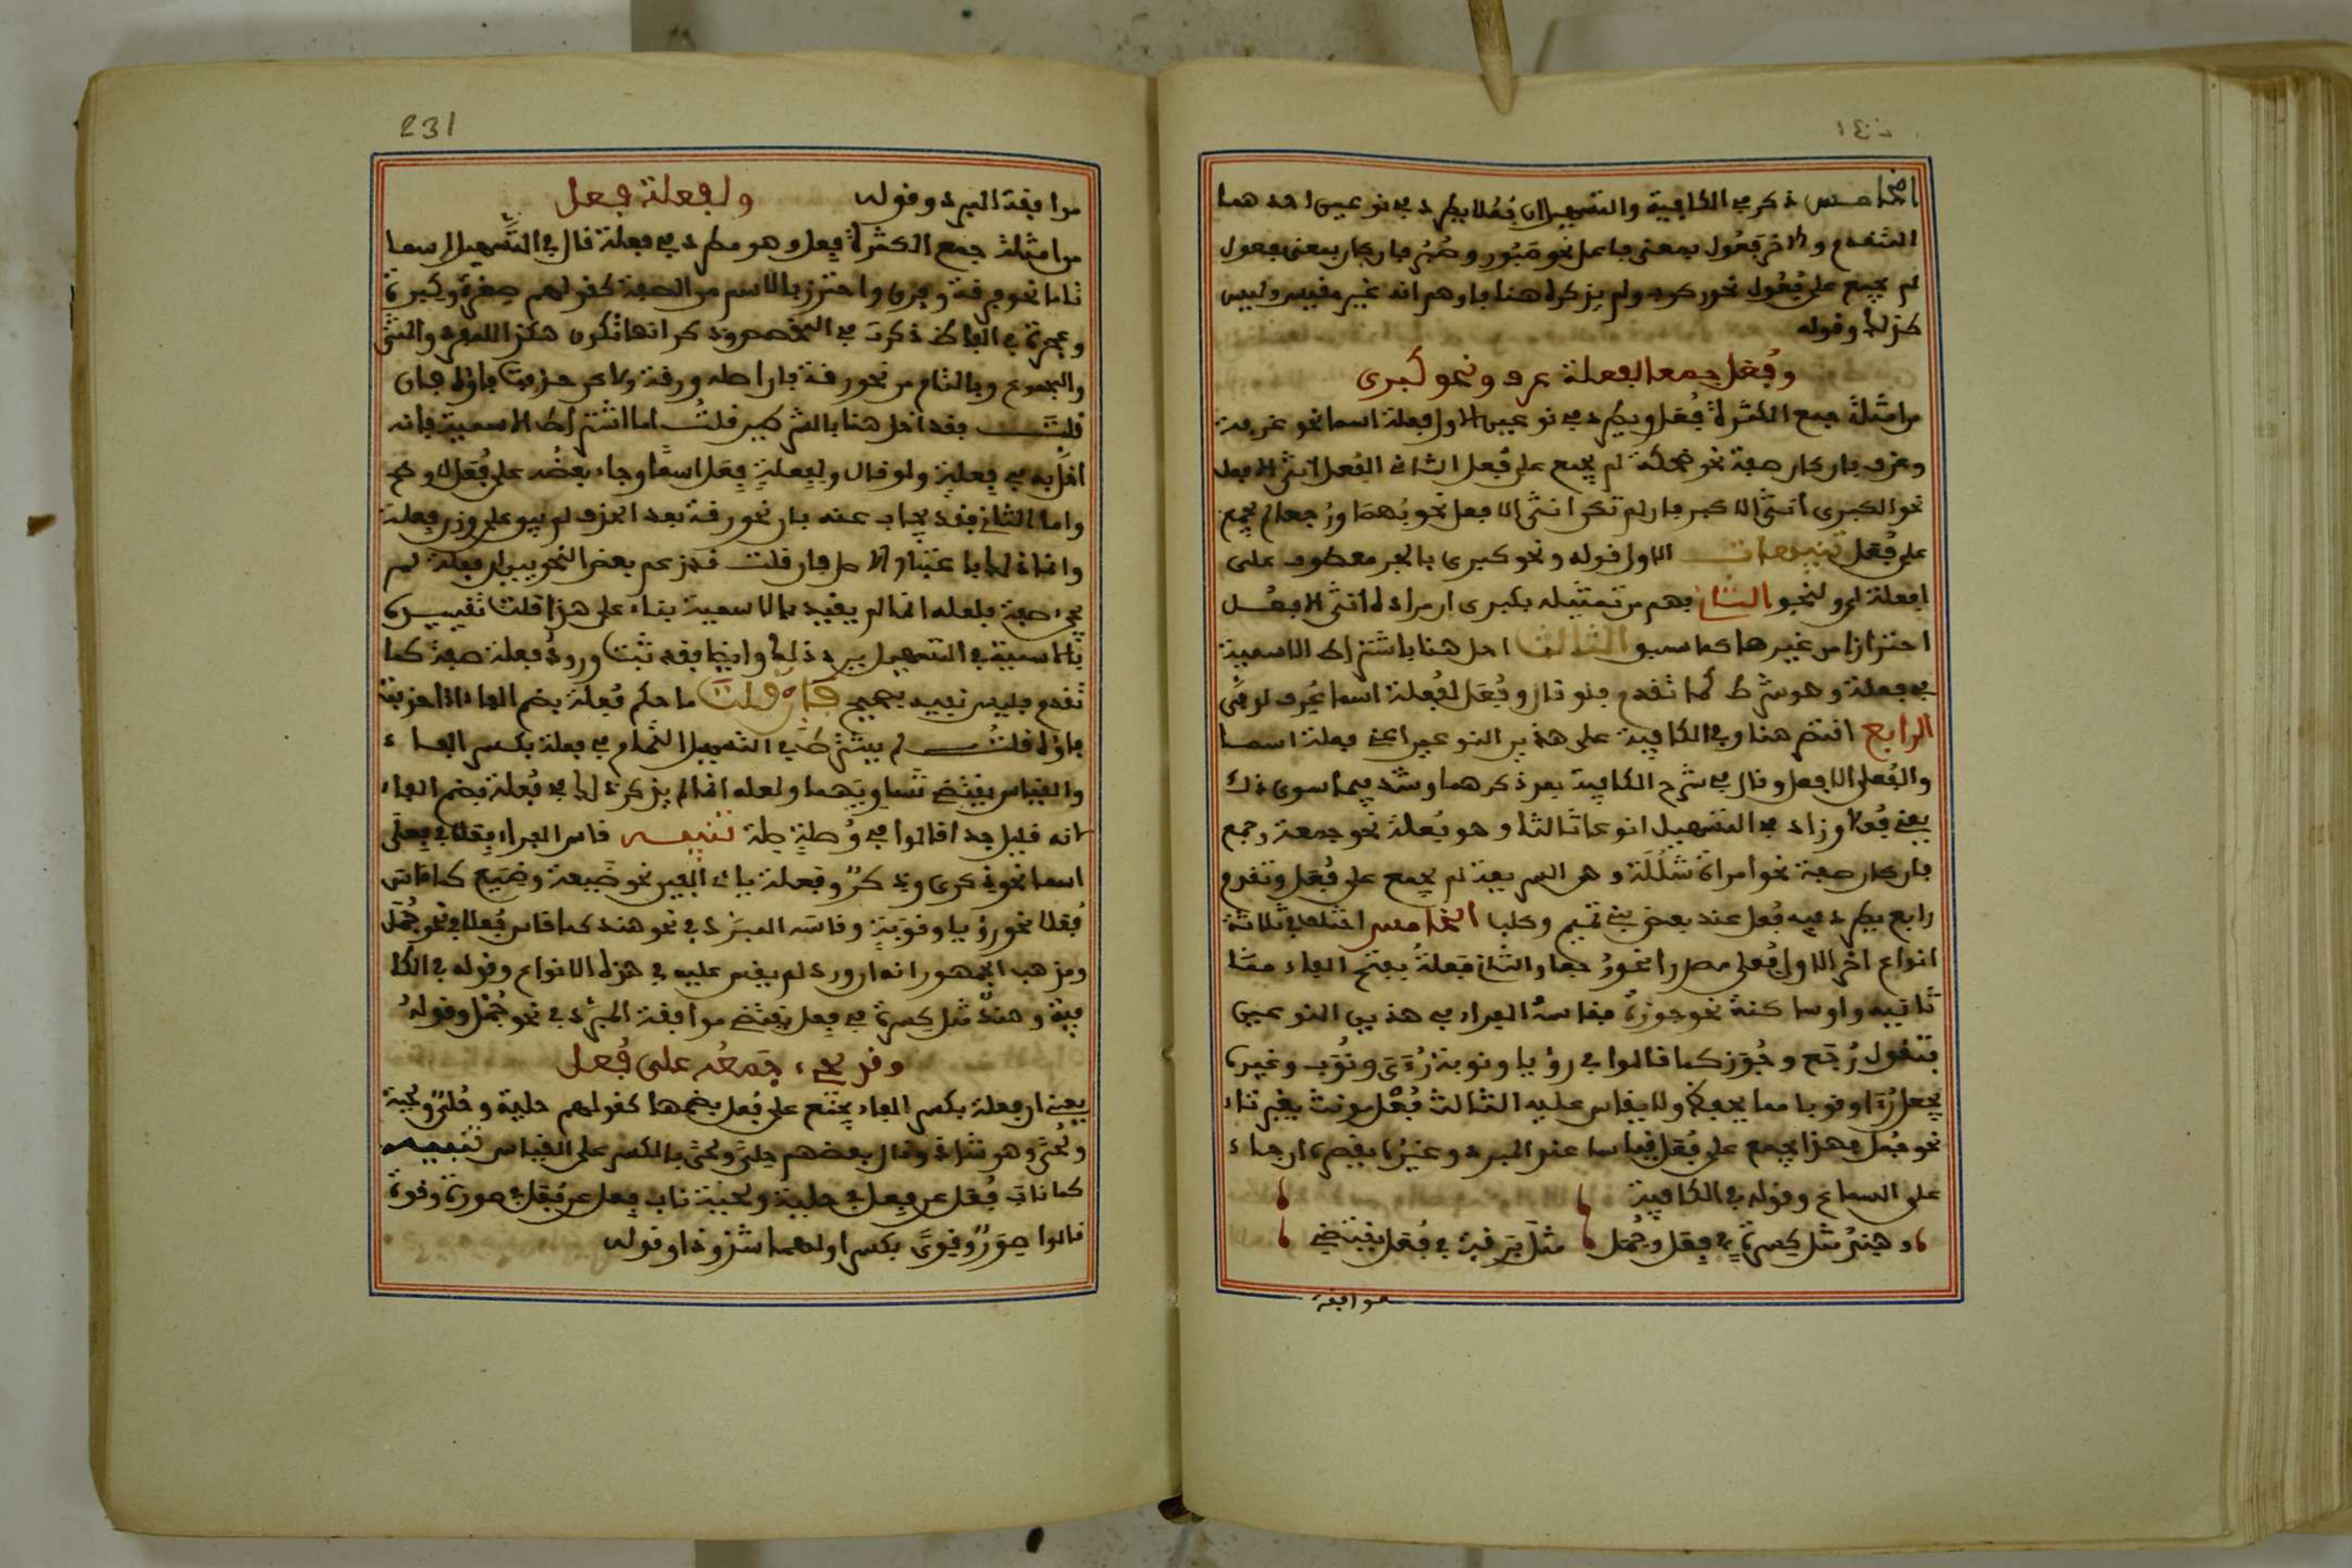 الخامس ذكر في الكافية والتسهيل ان فُعُلا يطرد في نوعين احدهما
المتقدم والاخر فَعُول بمعنى فاعل نحو صَبُور وصُبُر فان كان بمعنى مفعول
لم يجمع على فُعُل نحو ركوب ولم يذكره هنا فاوهم انه غير مقيس وليس
كذلك وقوله
وفُعَل جمعا لفعلة عرف ونحو كبرى
من امثلة جمع الكثرة فُعَل ويطرد في نوعين الاول فعلة اسما نحو غرفة
وغرف فان كان صفة نحو ضحكة لم يجمع على فُعَل الثاني الفُعلى انثى الافعل
نحو الكبرى انثى الاكبر فان لم تكن انثى الافعل نحو بُهمى ورُجعى لم يجمع
على فُعَل تنبيهات الاول قوله ونحو كبرى بالجر معطوف على
لفعلة اي ولنحو الثاني فهم من تمثيله بكبرى ان مراده انثى الافعل
احترازا من غيرها كما سبق الثالث اخل هنا باشتراط الاسمية
في فعلة وهو شرط كما تقدم فلو قال وفُعَل لفُعلة اسما عُرف لوفى
الرابع اقتصر هنا وفي الكافية على هذين النوعين اعني فعلة اسما
والفُعلى الافعل وقال في شرح الكافية بعد ذكرهما وشذ فيما سوى ذلك
يعني فُعَلا وزاد في التسهيل نوعا ثالثا وهو فُعُلة نحو جمعة وجمع
فان كان صفة نحو امراة شُلُلَة وهي السريعة لم يجمع على فُعَل وتقدم
رابع يطرد فيه فُعَل عند بعض بني تميم وكلب الخامس اختلف في ثلاثة
انواع اخر الاول فُعلى مصدرا نحو رُجعى والثاني فَعلة بفتح الفاء مما
ثانيه واو ساكنة نحو جوزة فقاسه الفراء في هذين النوعين
فتقول رُجَع وجُوَز كما قالوا في رؤيا ونوبة رُؤَى ونُوَب وغيره
يجعل رُؤى ونوبا مما يحفظ ولا يقاس عليه الثالث فُعْل مؤنث بغير تاء
نحو جُمْل فهذا يجمع على فُعَل قياسا عند المبرد وغيره يقصره على ما جاء
على السماع وقوله في الكافية
وهِندُ مثل كِسرة في فِعَل وجُمْل مثل بَرقة في فُعَل يقتضي
موافقة
231
موافقة المبرد وقوله ولفعلة فعل
من امثلة جمع الكثرة فِعَل وهو مطرد في فعلة قال في التسهيل اسما
تاما نحو فرقة وفرق واحترز بالاسم من الصفة كقولهم صِغرة وكِبرة
وعجزة في الفاظ ذكرت في المخصص وذكر انها تكون هكذا للمفرد والمثنى
والمجموع وبالتام من نحو رقة فان اصله ورقة ولاكن حذفت فاؤه فان
قلت فقد اخل هنا بالشرطين قلت اما اشتراط الاسمية فانه
اخل به في فِعلة ولو قال ولفِعلةٍ فِعَل اسما وجاء بعضُه على فُعَل لاوضح
واما الثاني فقد يجاب عنه بان نحو رقة بعد الحذف لم يبق على وزن فِعلة
وانما ذلك باعتبار الاصل فان قلت قد زعم بعض النحويين ان فعلة لم
يجئ صفة فلعله انما لم يقيد بالاسمية بناء على هذا قلت تقييده
بالاسمية في التسهيل يرد ذلك وايضا فقد ثبت ورودُ فعلة صفة كما
تقدم فليس تقييد بصحيح فان قلت ما حكم فُعلة بضم الفاء اذا حذفت
فاؤه قلت لم يشترط في التسهيل التمام الا في فِعلة بكسر الفاء
والقياس يقتضي تساويهما ولعله انما لم يذكر ذلك في فُعلة بضم الفاء
لانه قليل جدا قالوا في وُصلةٍ صلة تنبيه قاس الفراء فِعَلا في فِعلى
اسما نحو ذكرى وذِكر وفَعلة يائي العين نحو ضَيعة وضِيَع كما قاس
فُعَلا نحو رؤيا ونوبة وقاسه المبرد في نحو هند كما قاس فُعَلا في نحو جُمْل
ومذهب الجمهور انه ان ورد لم يقس عليه في هذه الانواع وقوله في الكا
فية وهندٌ مثل كِسرة في فِعَل يقتضي موافقة المبرد في نحو جُمْل وقوله
وقد يجيء جَمعُه على فُعَل
يعني ان فِعلة بكسر الفاء يجمع على فُعَل بضمها كقولهم حلية وحُلى ولحية
ولُحى وهو شاذ وقال بعضهم حِلى ولِحى بالكسر على القياس تنبيه
كما ناب فُعَل عن فِعَل في حلية ولحية ناب فِعَل عن فُعَل في صورة وقوة
قالوا صِوَرٌ وقِوىً بكسر اولهما شذوذا وقوله